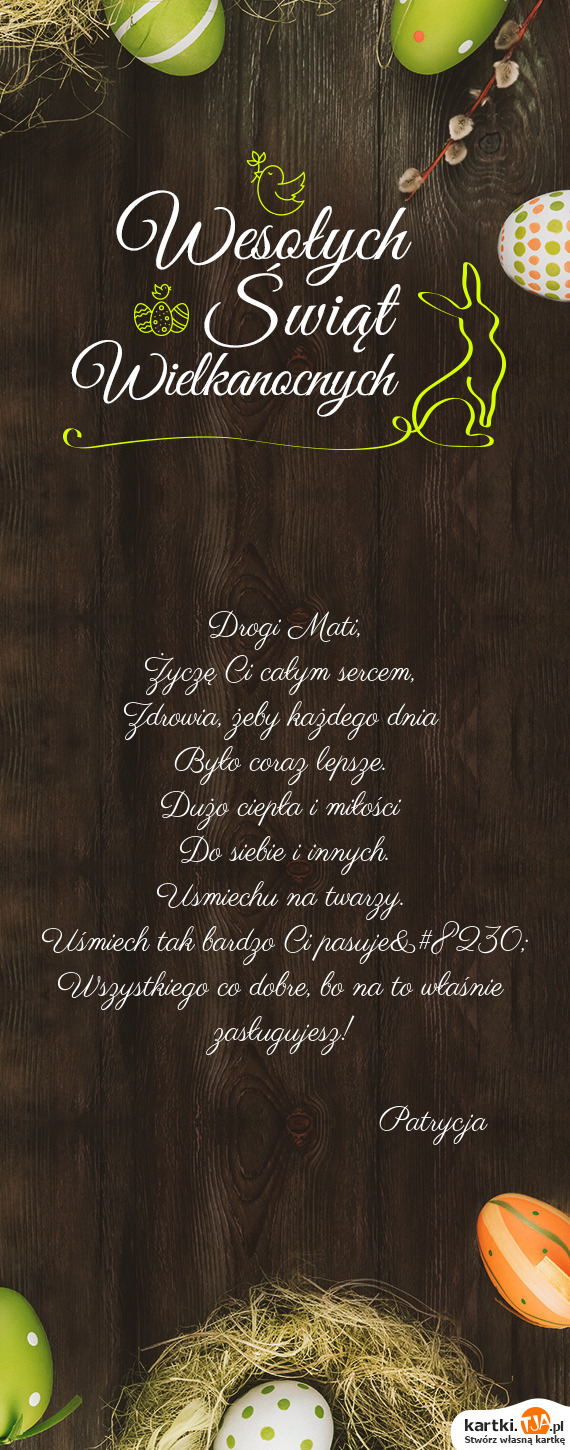 Wesołych
Świąt
Wielkanocnych
Drogi Mati,
Życzę Ci całym sercem,
Zdrowia, żeby każdego dnia
Było coraz lepsze.
Dużo ciepła i miłości
Do siebie i innych.
Usmiechu na twarzy.
Uśmiech tak bardzo Ci pasuje&#8230;
Wszystkiego co dobre, bo na to właśnie
zasługujesz!
Patrycja
kartki.TJA.pl
Stwórz własną kartkę